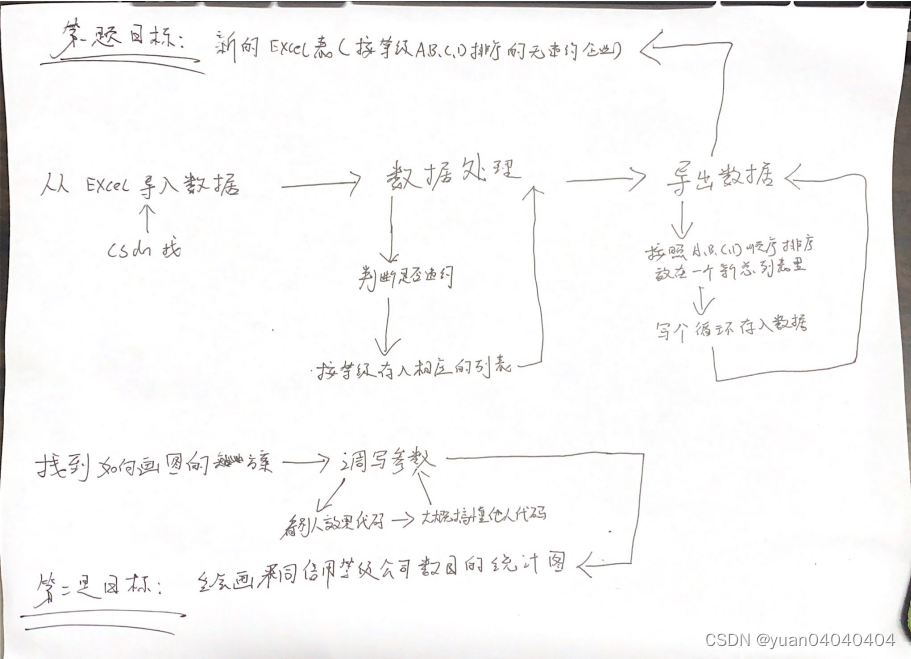 第一题目标: 新的EXCel表(按等级A,B,C,D排序的无违约企业)
从EXCel导入数据
数据处理
导出数据
csdn找
判断是否违约
按等级存入相应的列表
按照A,B,C,D顺序排序
放在一个新总列表里
写个循环存入数据
找到如何画图的方案
调写参数
看别人效果代码
大概搞懂他人代码
第二题目标: 绘画不同信用等级公司数目的统计图
CSDN @yuan04040404